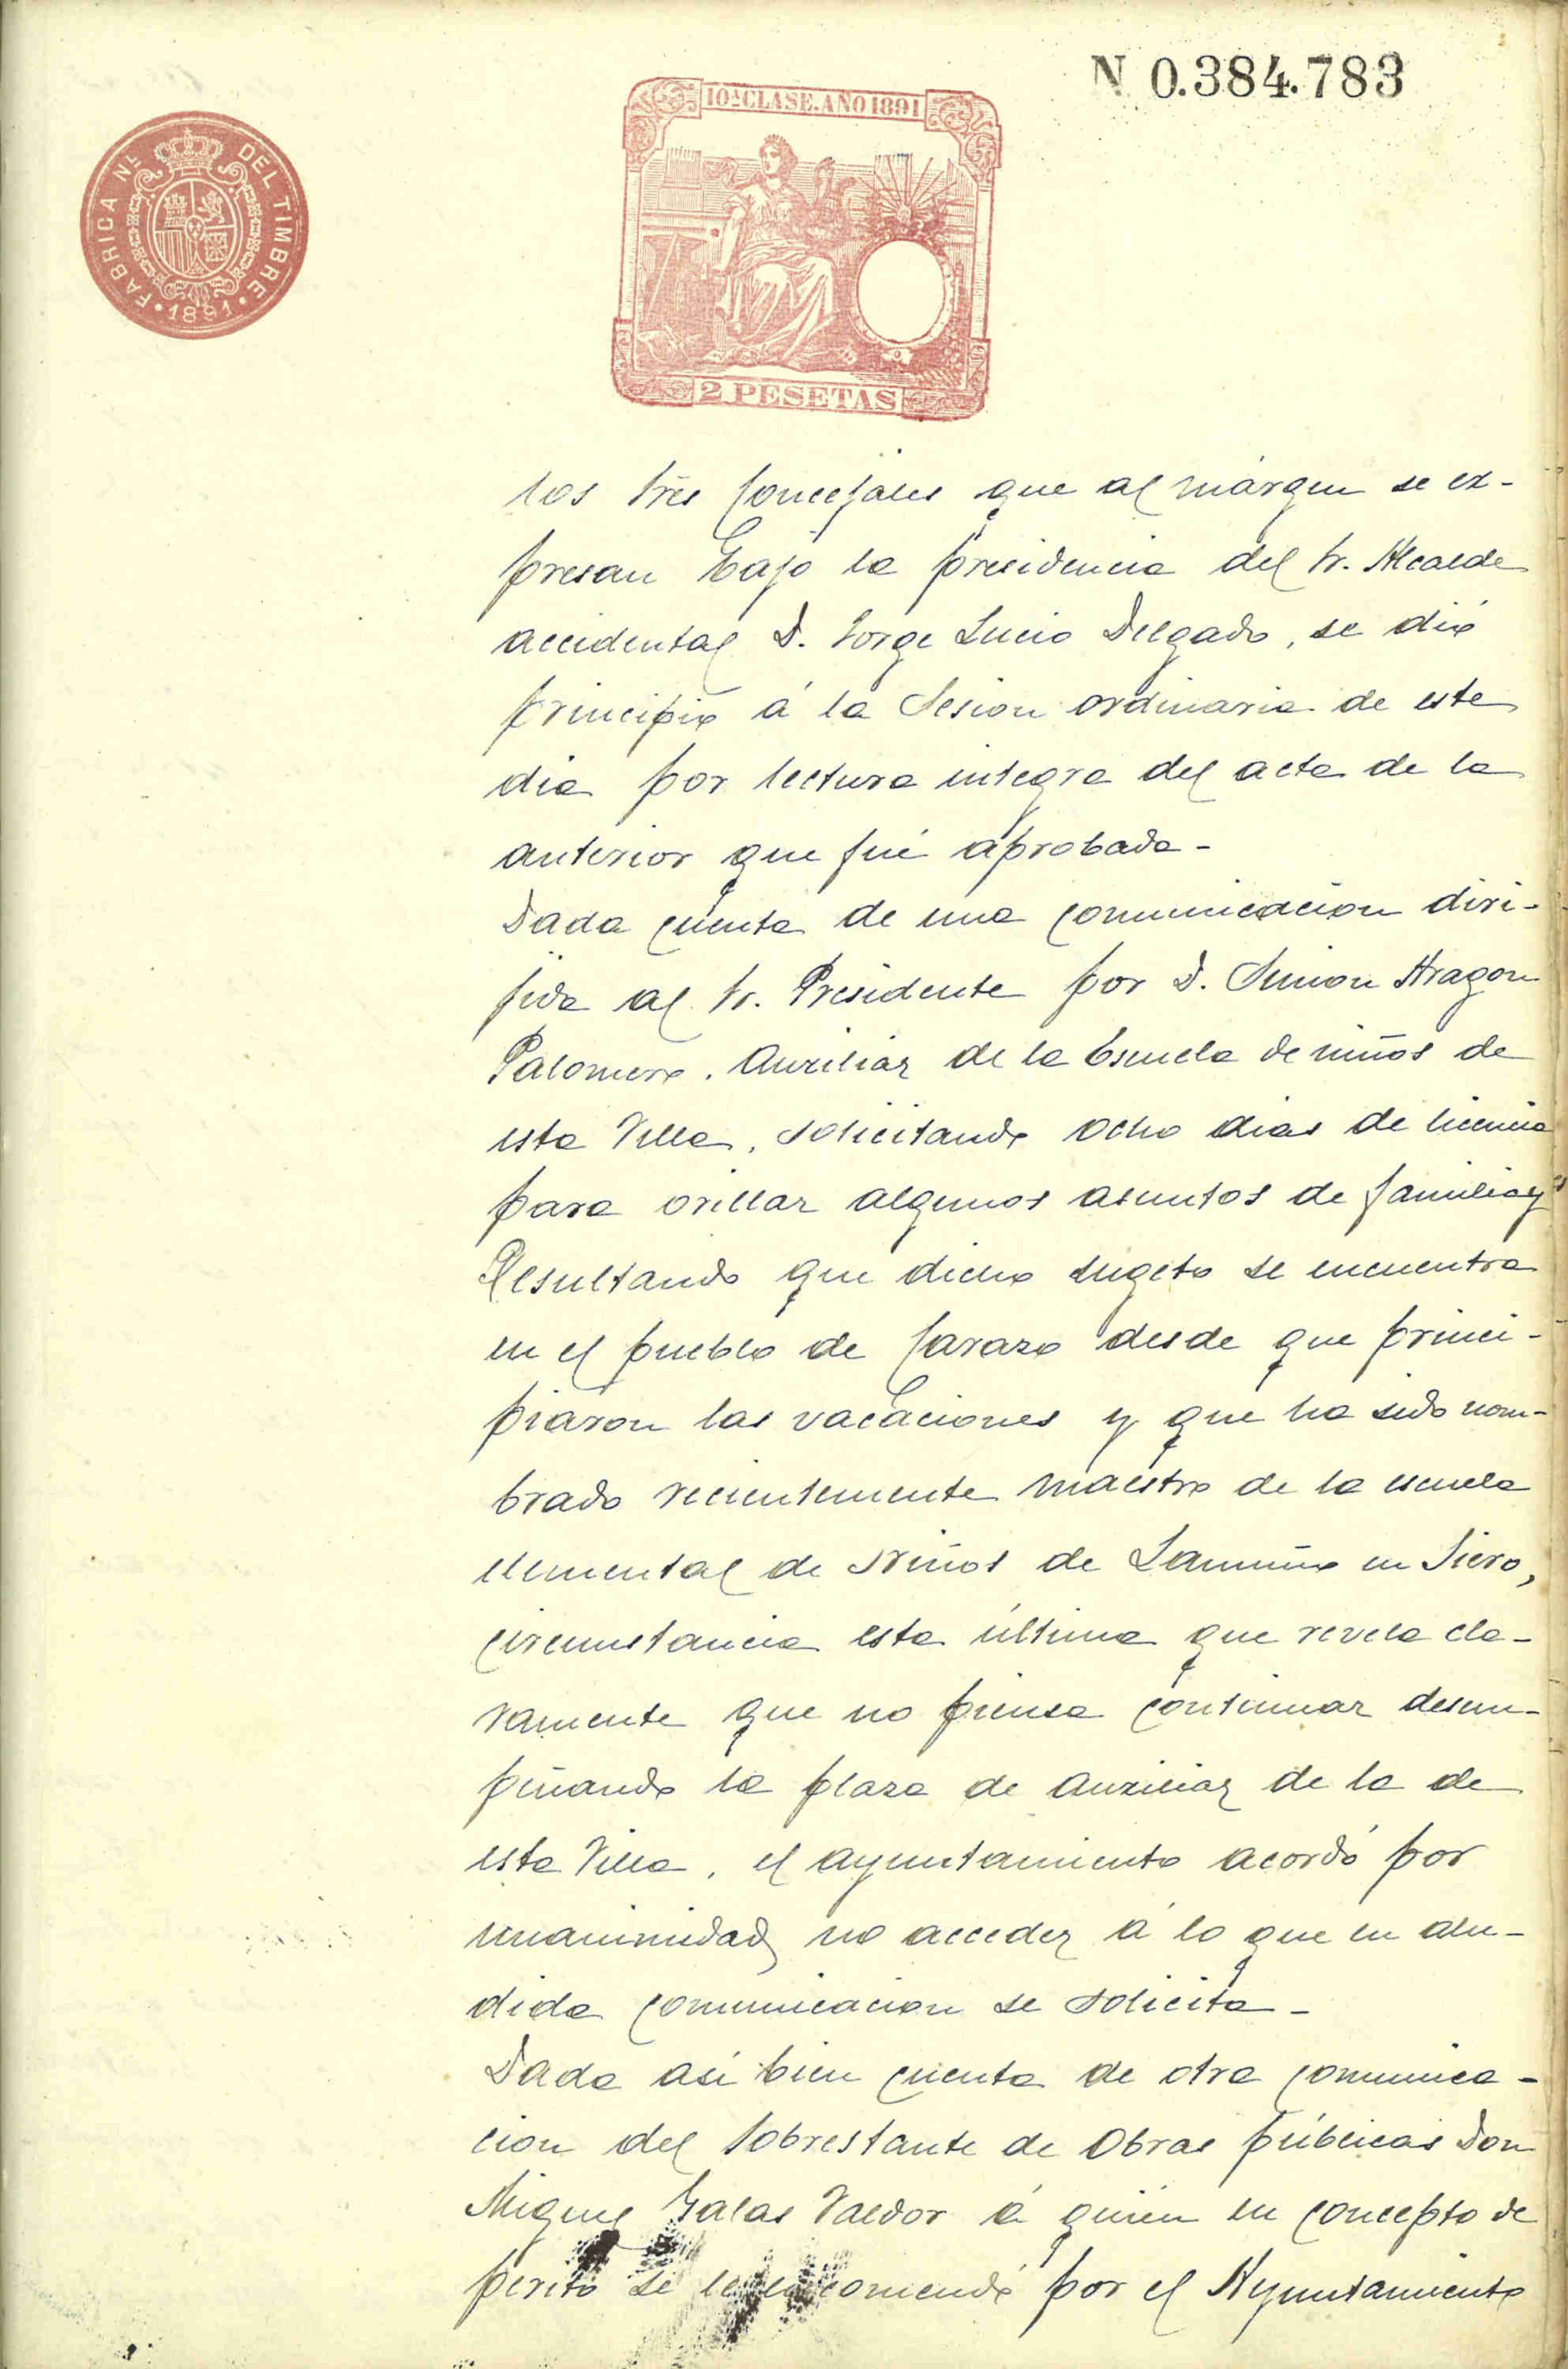 N 0.384.783
10ª CLASE. AÑO 1891
FABRICA Nᴸ DEL TIMBRE
1891
2 PESETAS
los trés Concejales que al márgen se ex-
presan bajo la presidencia del Sr. Alcalde
accidental D. Jorge Lucio Delgado, se dió
principio á la Sesion ordinaria de este
dia por lectura integra del acta de la
anterior que fué aprobada -
Dada cuenta de una comunicacion diri-
jida al Sr. Presidente por D. Simon Aragon
Palomero. Auxiliar de la Escuela de niños de
esta Villa, solicitando ocho dias de licencia
para orillar algunos asuntos de familia y
Resultando que dicho sugeto se encuentra
en el pueblo de Carazo desde que princi-
piaron las vacaciones y que ha sido nom-
brado recientemente maestro de la escuela
elemental de niños de en Siero,
circunstancia esta última que revela cla-
ramente que no piensa continuar desem-
peñando la plaza de auxiliar de la de
esta Villa, el ayuntamiento acordó por
unanimidad no acceder á lo que en alu-
dida comunicacion se solicita -
Dada asi bien cuenta de otra comunica-
cion del Sobrestante de Obras públicas Don
Miguel Salas á quién en concepto de
perito se le encomendó por el Ayuntamiento